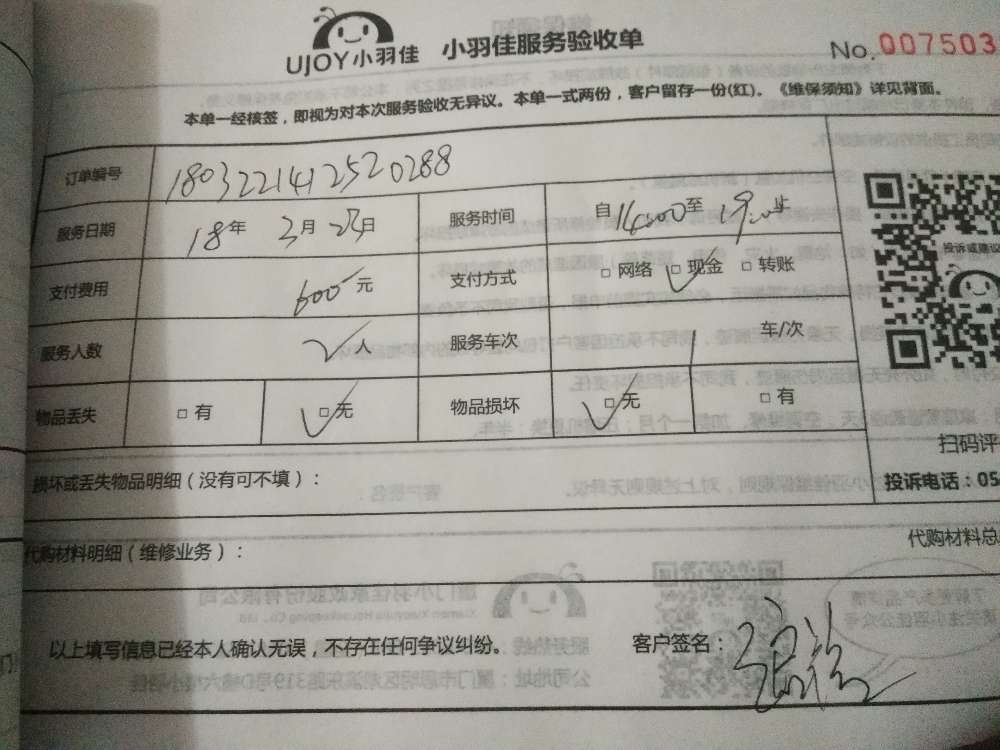 UJOY小羽佳 小羽佳服务验收单 No.007503
本单一经核签，即视为对本次服务验收无异议。本单一式两份，客户留存一份(红)。《维保须知》详见背面。
订单编号 180322141252 0288
服务日期 18年 3月 日 服务时间 自14:00至19:00止
支付费用 600元 支付方式 □网络 □现金 □转账
投诉或建议
服务人数 人 服务车次 车/次
物品丢失 □有 □无 物品损坏 □无 □有
扫码评
损坏或丢失物品明细（没有可不填）： 投诉电话：05
代购材料明细（维修业务）： 代购材料总
以上填写信息已经本人确认无误，不存在任何争议纠纷。 客户签名：